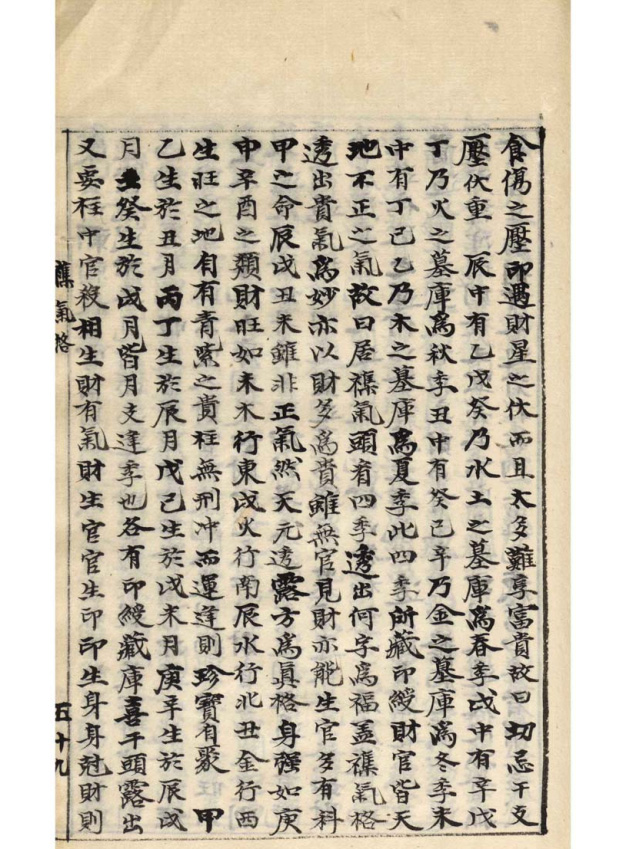 食傷之壓即遇財星之伏而且太多難享富貴故曰切忌干支
壓伏重　辰中有乙戊癸乃水土之墓庫爲春季戌中有辛戊
丁乃火之墓庫爲秋季丑中有癸己辛乃金之墓庫爲冬季未
中有丁己乙乃木之墓庫爲夏季此四季所藏印綬財官皆天
地不正之氣故曰居襍氣頭看四季透出何字爲福盖襍氣格
透出貴氣爲妙亦以財多爲貴雖無官見財亦能生官多有科
甲之命辰戌丑未雖非正氣然天元透露方爲眞格身强如庚
申辛酉之類財旺如未木行東戌火行南辰水行北丑金行西
生旺之地自有青紫之貴柱無刑冲而運逢則珍寶有聚　甲
乙生於丑月丙丁生於辰月戊己生於戌未月庚辛生於辰戌
月壬癸生於戌月皆月支逢季也各有印綬藏庫喜干頭露出
又要柱中官殺相生財有氣財生官官生印印生身身尅財則
襍氣格
五十九